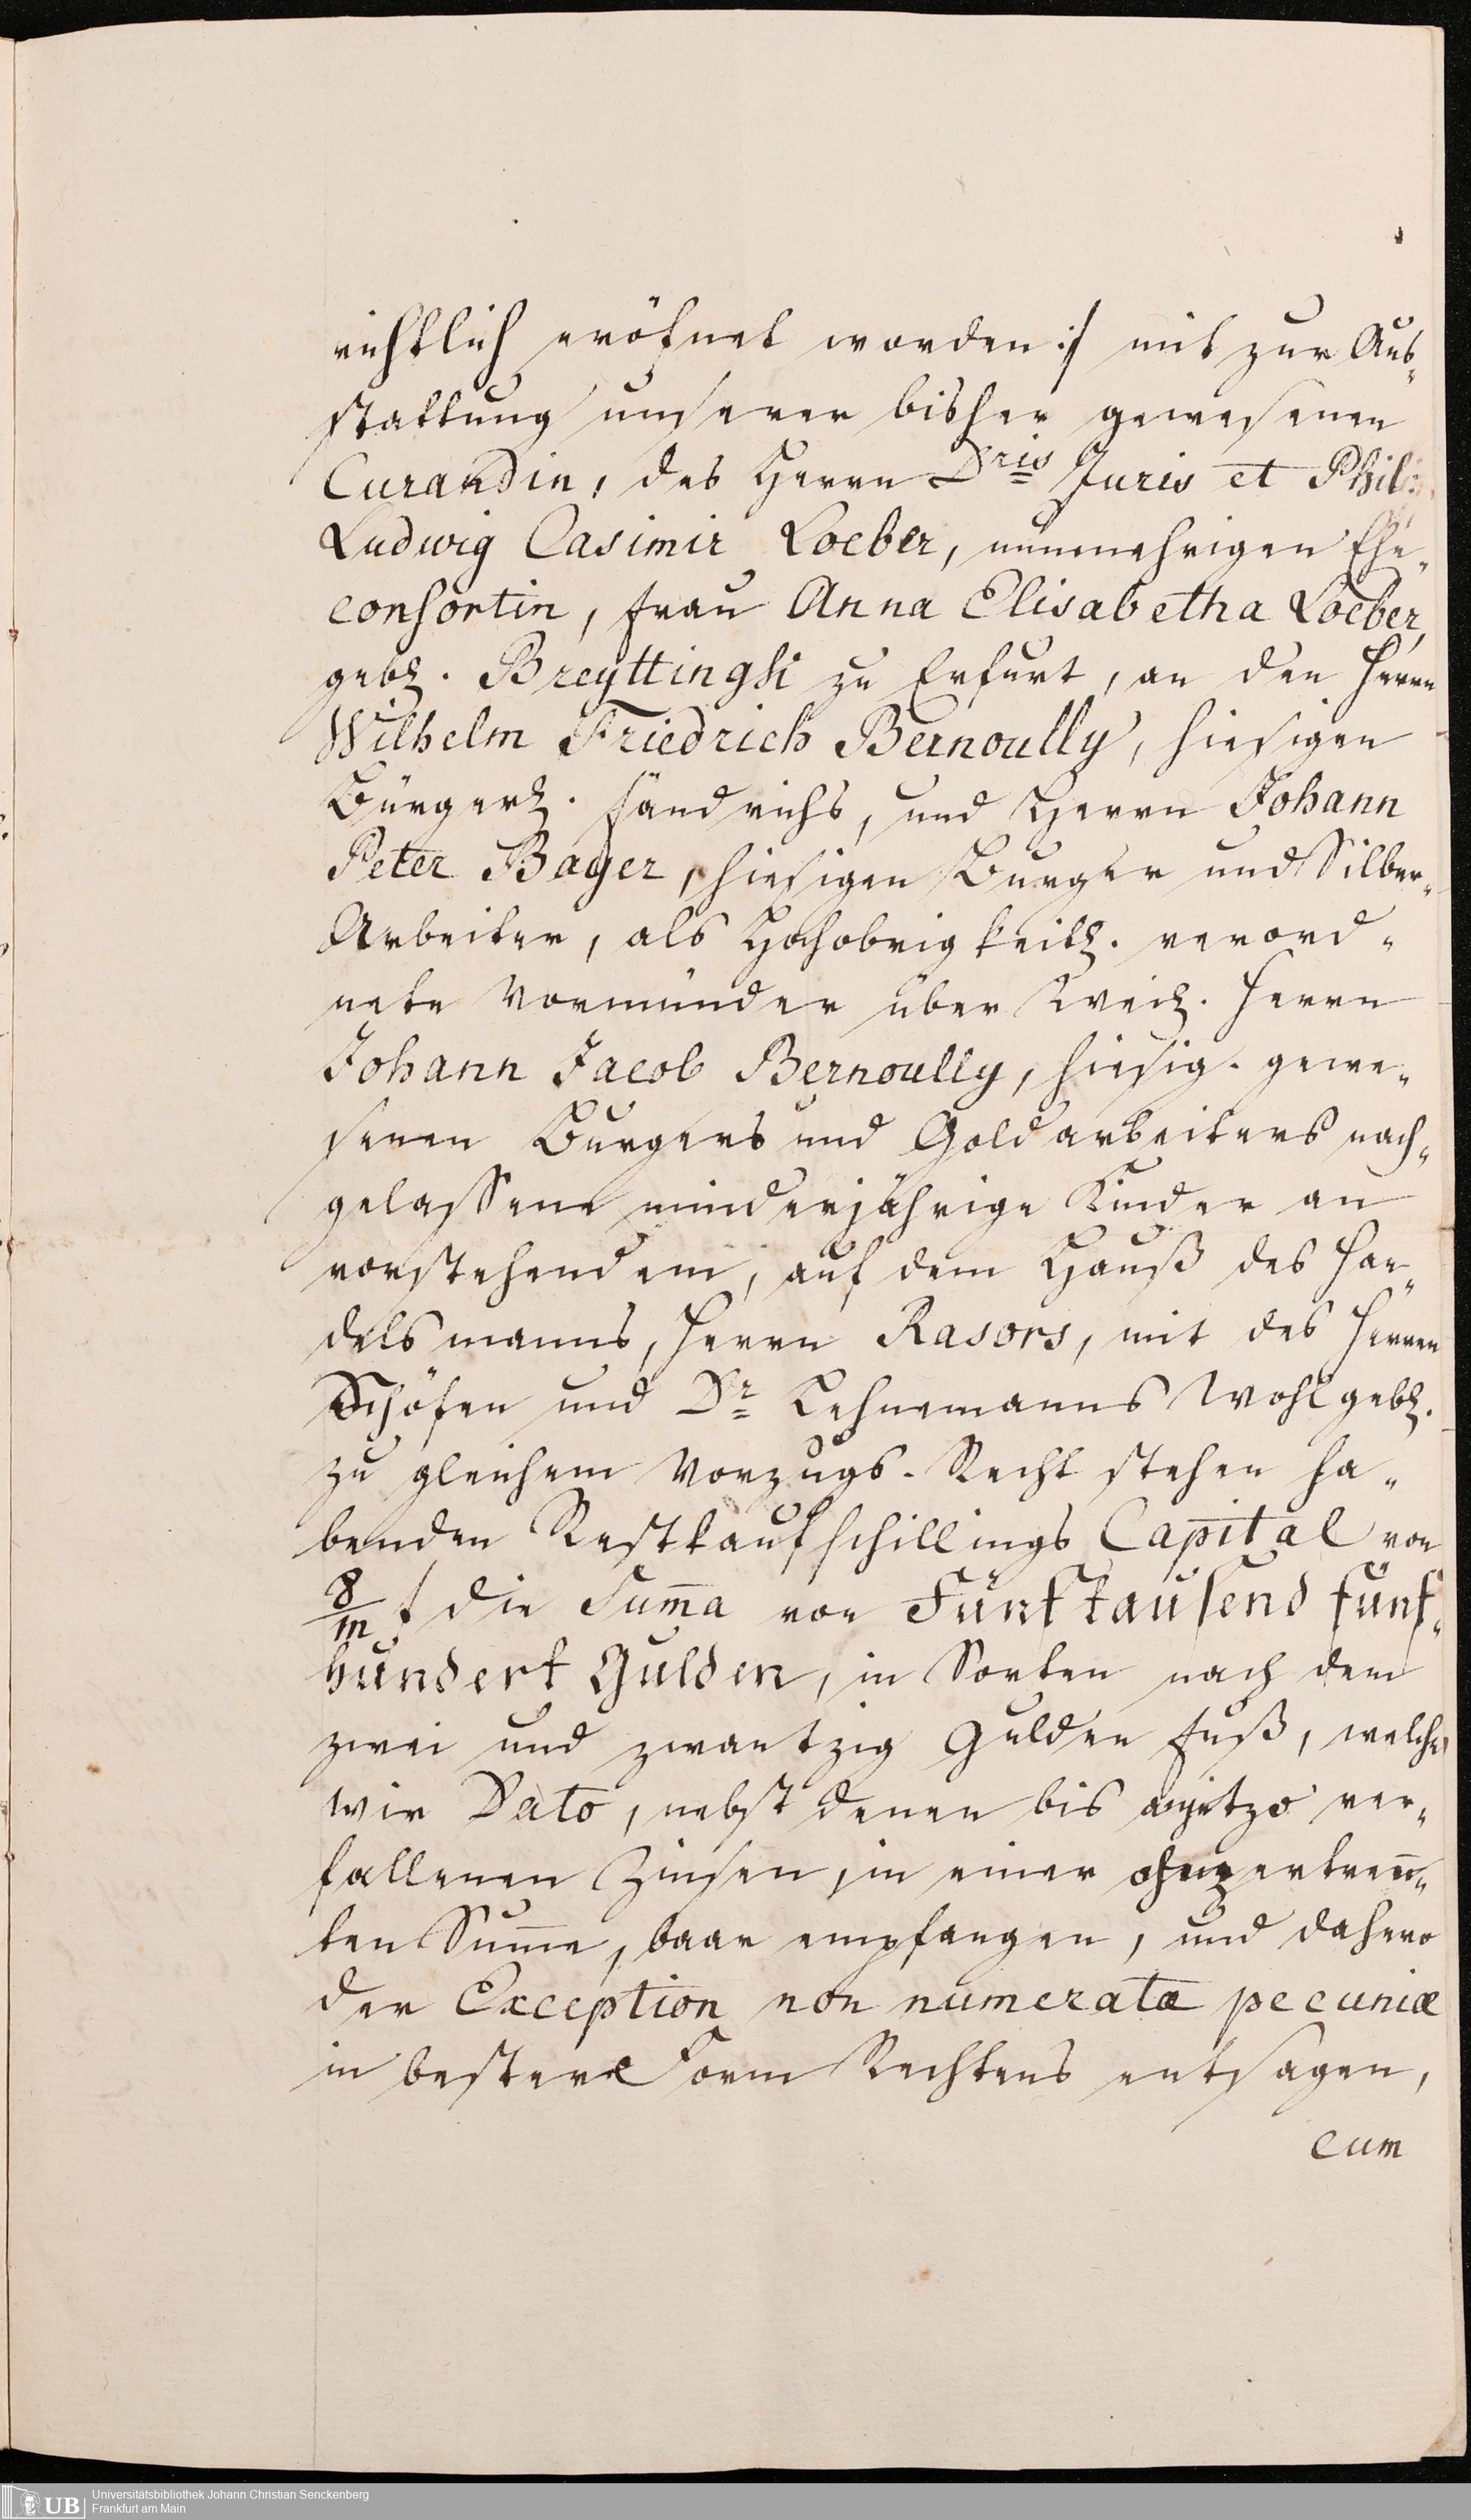 richtlich eröfnet worden :/ mit zur Aus-
stattung unserer bisher gewesenen
Curandin, des Herrn Dris Juris et Phil:
Ludwig Casimir Loeber, nunmehrigen Ehe-
consortin, Frau Anna Elisabetha Loeber,
gebl. Breyttingki zu Erfurt, an den Herrn
Wilhelm Friedrich Bernoully, hiesigen
Bürgerl. Fändrichs, und Herrn Johann
Peter Bager, hiesigen Burger und Silber-
Arbeiter, als Hochobrigkeitl. verord-
nete Vormünder über Weil. Herrn
Johann Jacob Bernoully, hiesig. gewe-
senen Burgers und Goldarbeiters nach-
gelassene minderjährige Kinder an
vorstehendem, auf dem Hauß des Han-
delsmanns, Herrn Rasors, mit des Herren
Schöfen und Dr Lehnemanns Wohlgebl.
zu gleichem Vorzugs-Recht stehen ha-
benden Restkaufschillings Capital von
8/m f die Sum̄a von Fünftausend fünf-
hundert Gulden, in Sorten nach dem
zwei und zwantzig Gulden Fuß, welche
wir Dato, nebst denen bis anjetzo ver-
fallenen Zinsen, in einer ohnzertren̄-
ten Sum̄e, baar empfangen, und dahero
der Exception non numeratæ pecuniæ
in bester Form Rechtens entsagen,
cum
UB Universitätsbibliothek Johann Christian Senckenberg
Frankfurt am Main